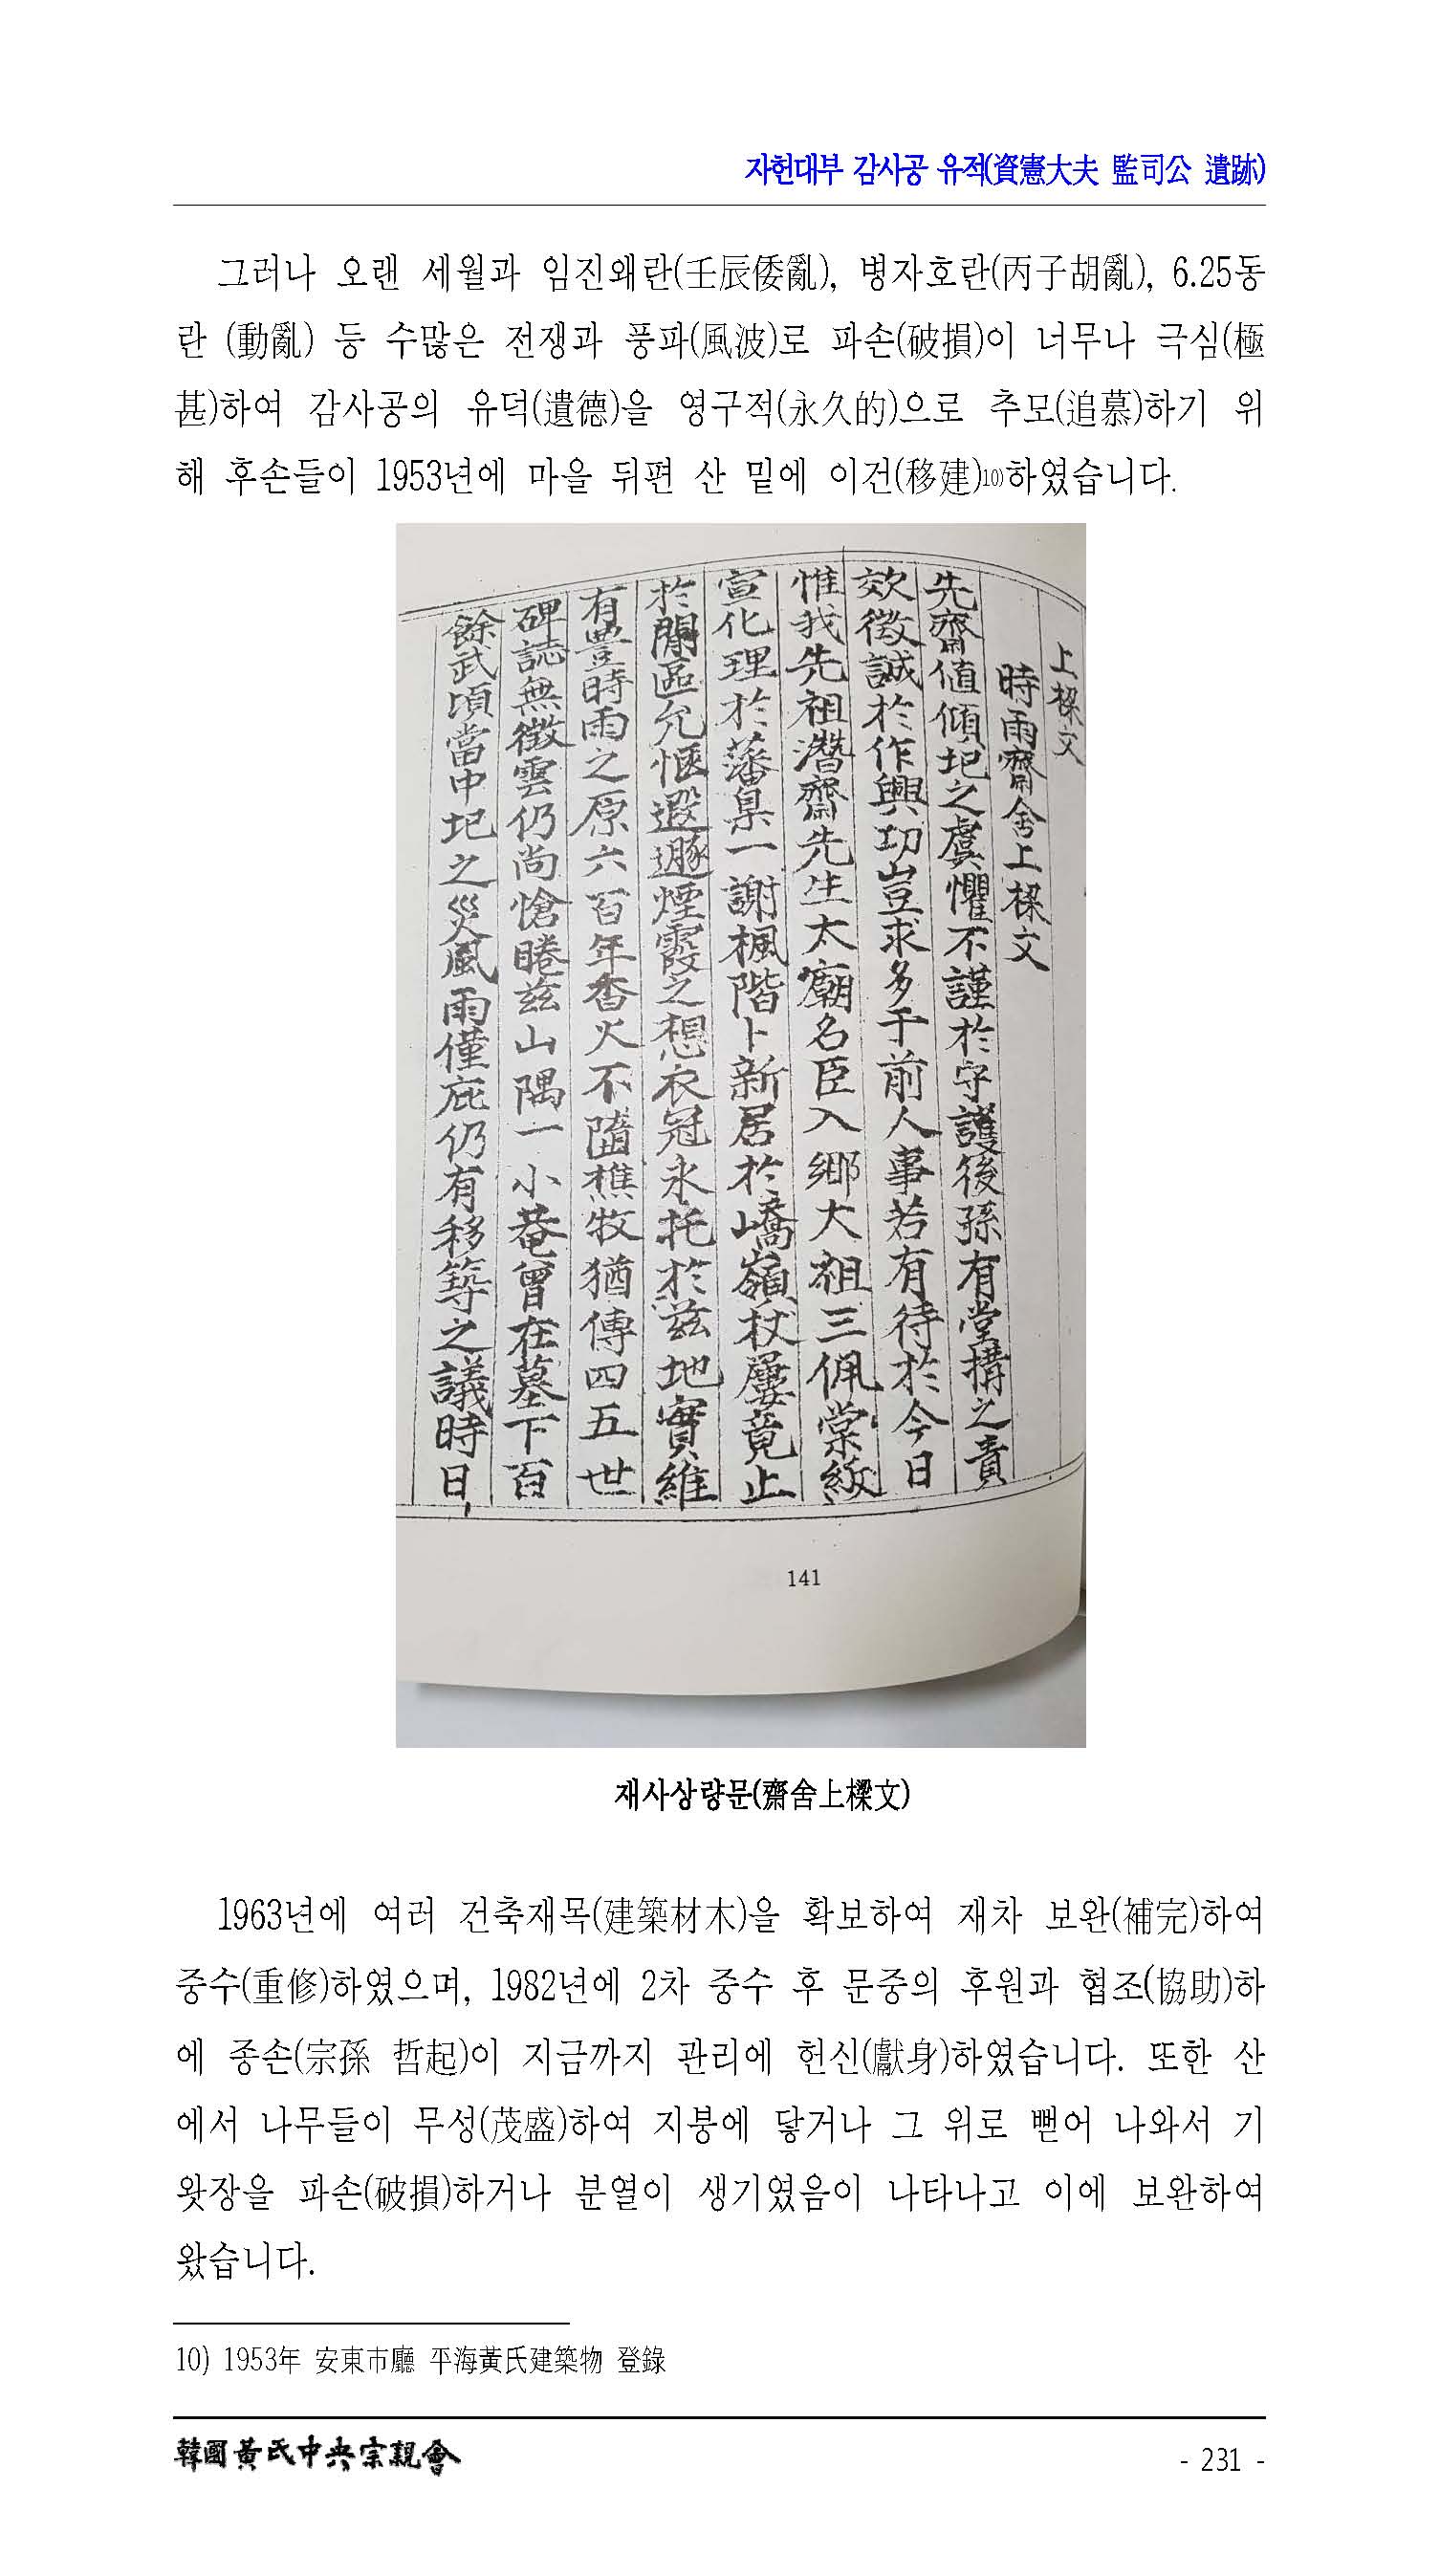 자헌대부 감사공 유적(資憲大夫 監司公 遺跡)
그러나 오랜 세월과 임진왜란(壬辰倭亂), 병자호란(丙子胡亂), 6.25동
란 (動亂) 등 수많은 전쟁과 풍파(風波)로 파손(破損)이 너무나 극심(極
甚)하여 감사공의 유덕(遺德)을 영구적(永久的)으로 추모(追慕)하기 위
해 후손들이 1953년에 마을 뒤편 산 밑에 이건(移建)10)하였습니다.
上樑文
時雨齋舍上樑文
先齋値傾圮之虞懼不謹於守護後孫有堂構之責
欬徵誠於作興功豈求多于前人事若有待於今日
惟我先祖潛齋先生太廟名臣入鄕大祖三佩棠紱
宣化理於藩臬一謝楓階卜新居於嶠嶺杖屨竟止
於閒區允愜遐遯煙霞之想衣冠永托於茲地實維
有豊時雨之原六百年香火不隨樵牧猶傳四五世
碑誌無徵雲仍尚愴睠茲山隅一小菴曾在墓下百
餘武頃當中圮之災風雨僅庇仍有移築之議時日
141
재사상량문(齋舍上樑文)
1963년에 여러 건축재목(建築材木)을 확보하여 재차 보완(補完)하여
중수(重修)하였으며, 1982년에 2차 중수 후 문중의 후원과 협조(協助)하
에 종손(宗孫 哲起)이 지금까지 관리에 헌신(獻身)하였습니다. 또한 산
에서 나무들이 무성(茂盛)하여 지붕에 닿거나 그 위로 뻗어 나와서 기
왓장을 파손(破損)하거나 분열이 생기였음이 나타나고 이에 보완하여
왔습니다.
10) 1953年 安東市廳 平海黃氏建築物 登錄
韓國黃氏中央宗親會
- 231 -